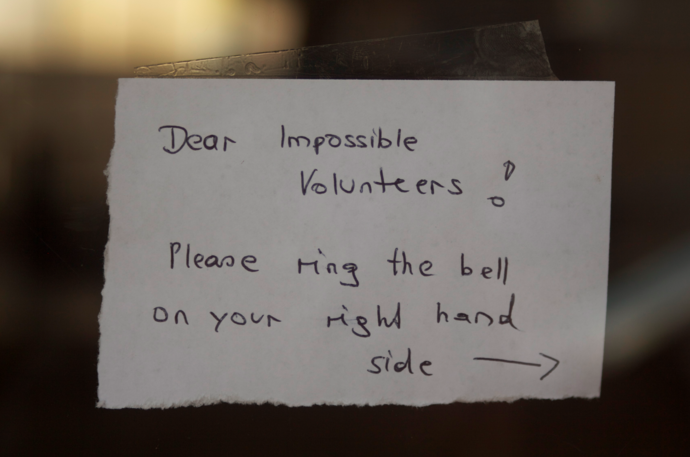 Dear Impossible
Volunteers!
Please ring the bell
on your right hand
side →